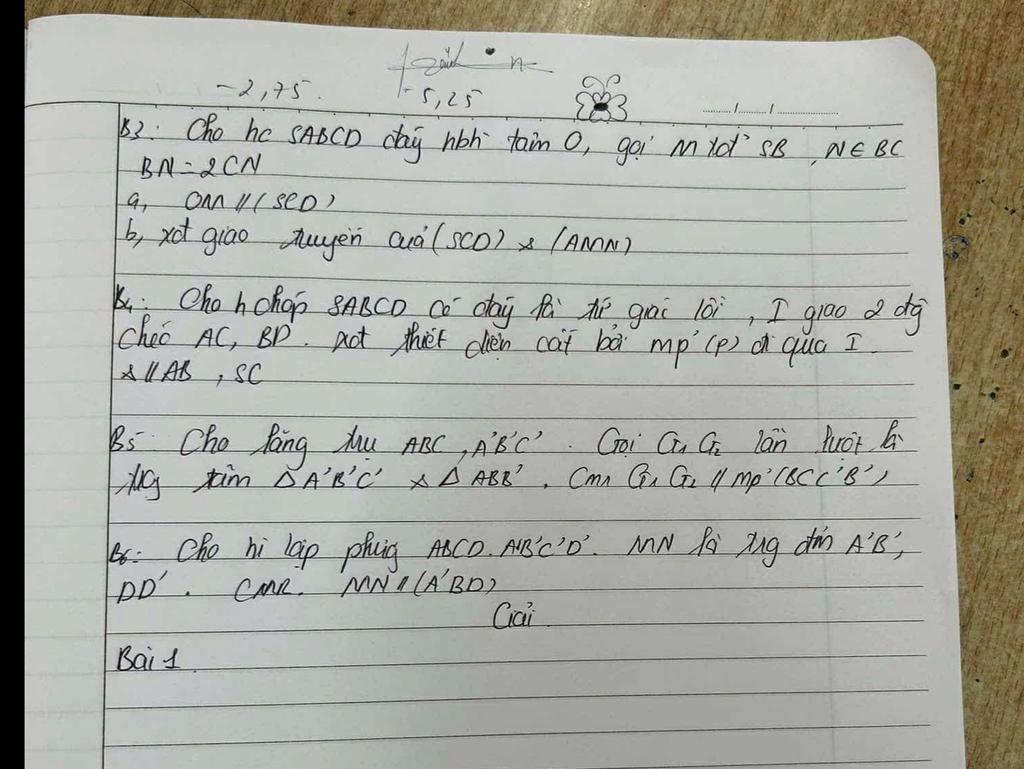 -2,75. -5,25
B3: Cho hc SABCD đáy hbh tâm O, gọi M trđ SB, N∈BC
BN=2CN
a, OM//(SCD)
b, xđ giao tuyến của (SCD) & (AMN)
B4: Cho h chóp SABCD có đáy là tứ giác lồi, I giao 2 đg
chéo AC, BD. xđ thiết diện cắt bởi mp (P) đi qua I
& // AB, SC
B5 Cho lăng trụ ABC, A'B'C'. Gọi G1 G2 lần lượt là
trg tâm Δ A'B'C' & Δ ABB'. Cm G1 G2 // mp (BCC'B')
B6: Cho hì lập phưg ABCD.A'B'C'D'. MN là trg đm A'B',
DD'. CMR. MN//(A'BD)
Giải
Bài 1